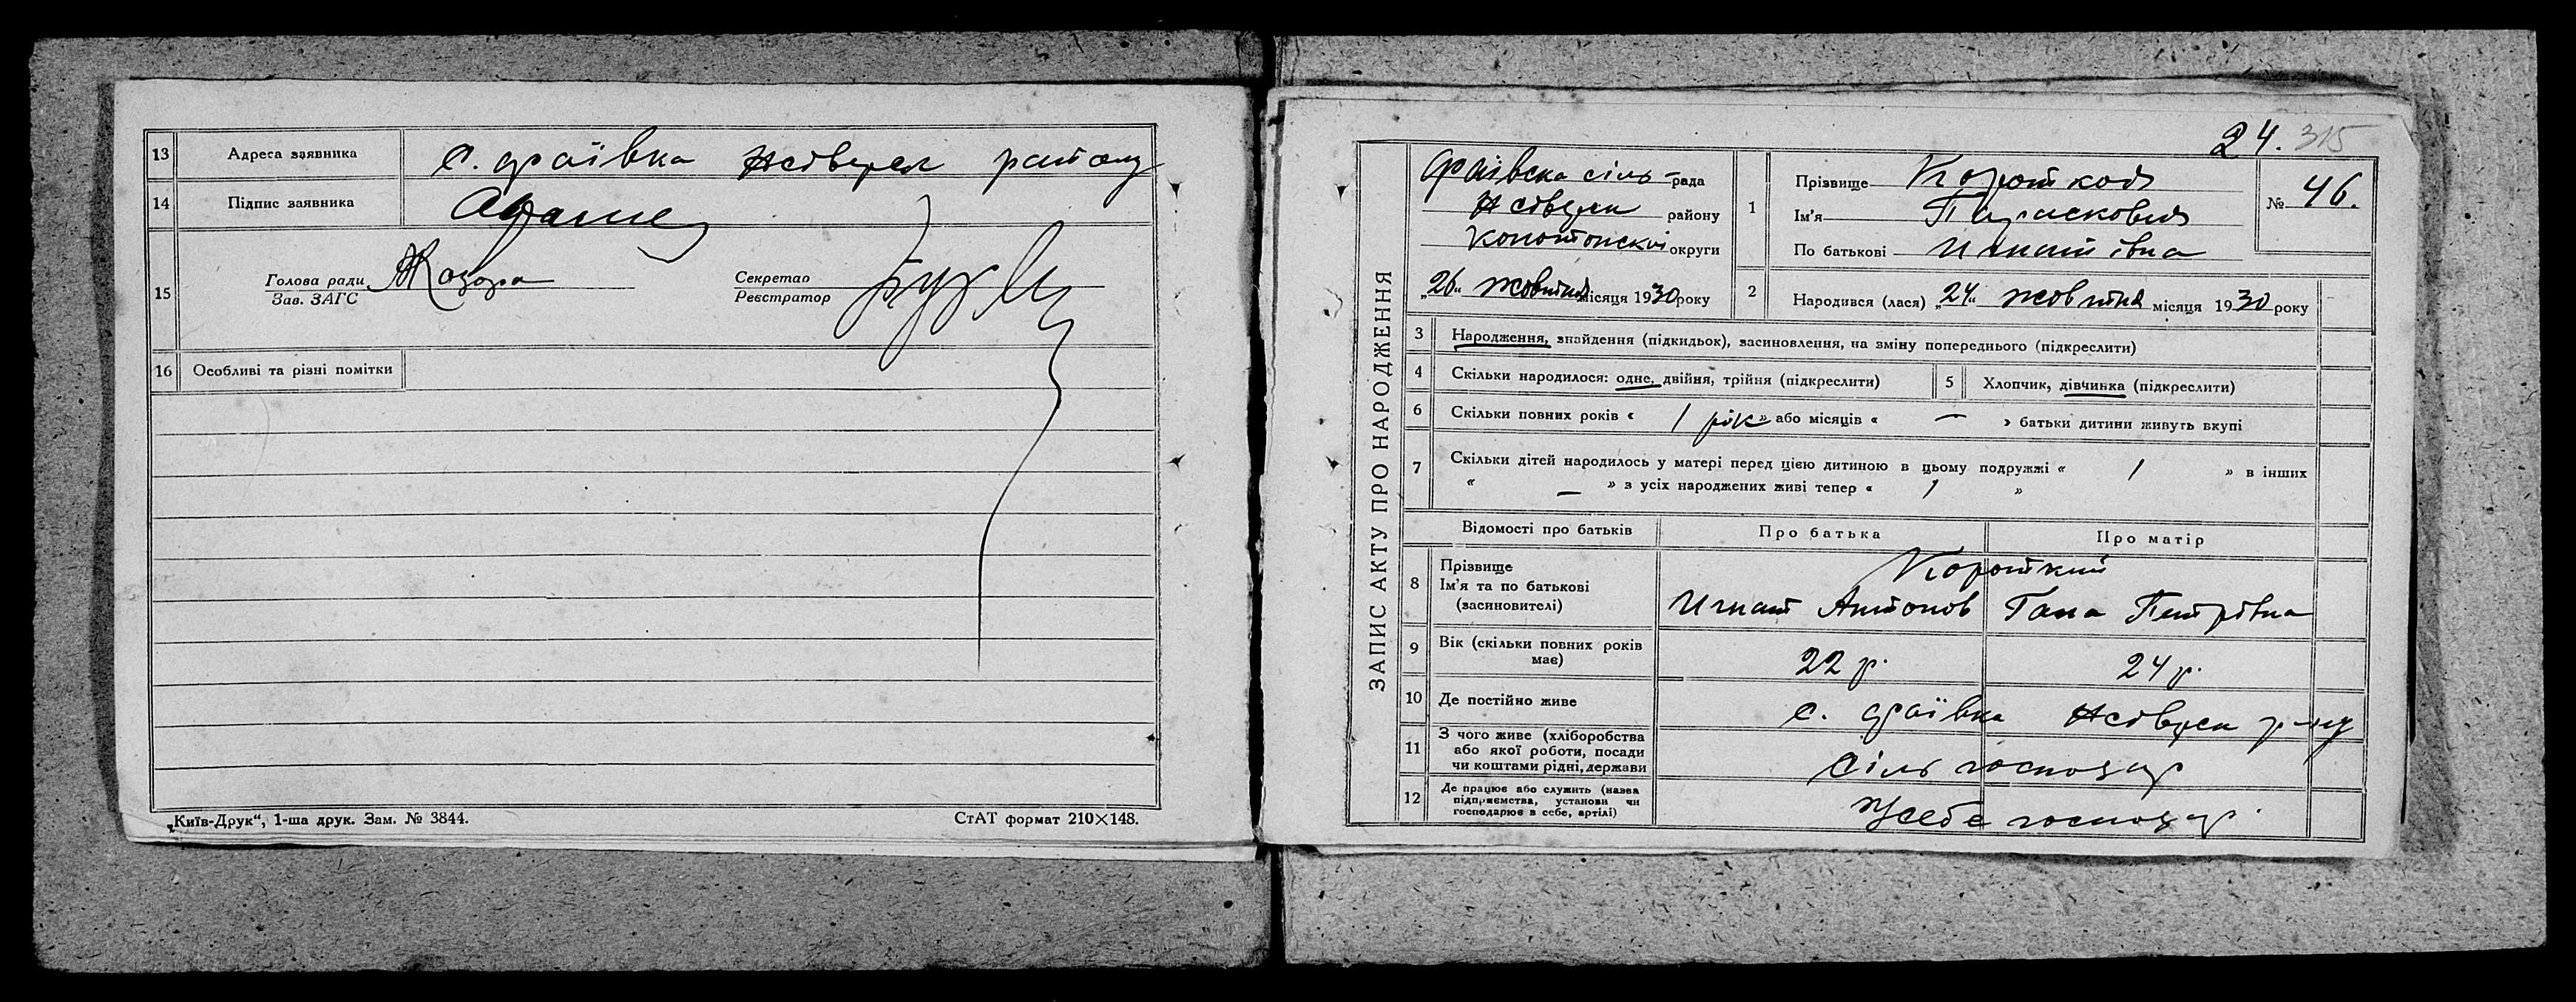 13 Адреса заявника с. Фаївка району
14 Підпис заявника
15 Голова ради Зав. ЗАГС Секретар Реєстратор
16 Особливі та різні помітки
„Київ-Друк“, 1-ша друк. Зам. № 3844. СтАТ формат 210×148.
24. 315
ЗАПИС АКТУ ПРО НАРОДЖЕННЯ
Фаївска сіль-рада
району
Конотопскої округи
„26“ жовтня місяця 1930 року
1 Прізвище Короткоя
Ім'я Парасковия
По батькові Игнатівна
№ 46.
2 Народився (лася) „24“ жовтня місяця 1930 року
3 Народження, знайдення (підкидьок), засиновлення, на зміну попереднього (підкреслити)
4 Скільки народилося: одне, двійня, трійня (підкреслити) 5 Хлопчик, дівчинка (підкреслити)
6 Скільки повних років « 1 рік » або місяців « — » батьки дитини живуть вкупі
7 Скільки дітей народилось у матері перед цією дитиною в цьому подружжі « 1 » в інших
« — » з усіх народжених живі тепер « 1 »
Відомості про батьків Про батька Про матір
8 Прізвище Ім'я та по батькові (засиновителі) Короткий
Игнат Антонов Гана Петрівна
9 Вік (скільки повних років має) 22 р. 24 р.
10 Де постійно живе с. Фаївка р-ну
11 З чого живе (хліборобства або якої роботи, посади чи коштами рідні, держави Сіль господар
12 Де працює або служить (назва підприємства, установи чи господарює в себе, артілі) Усебе господар